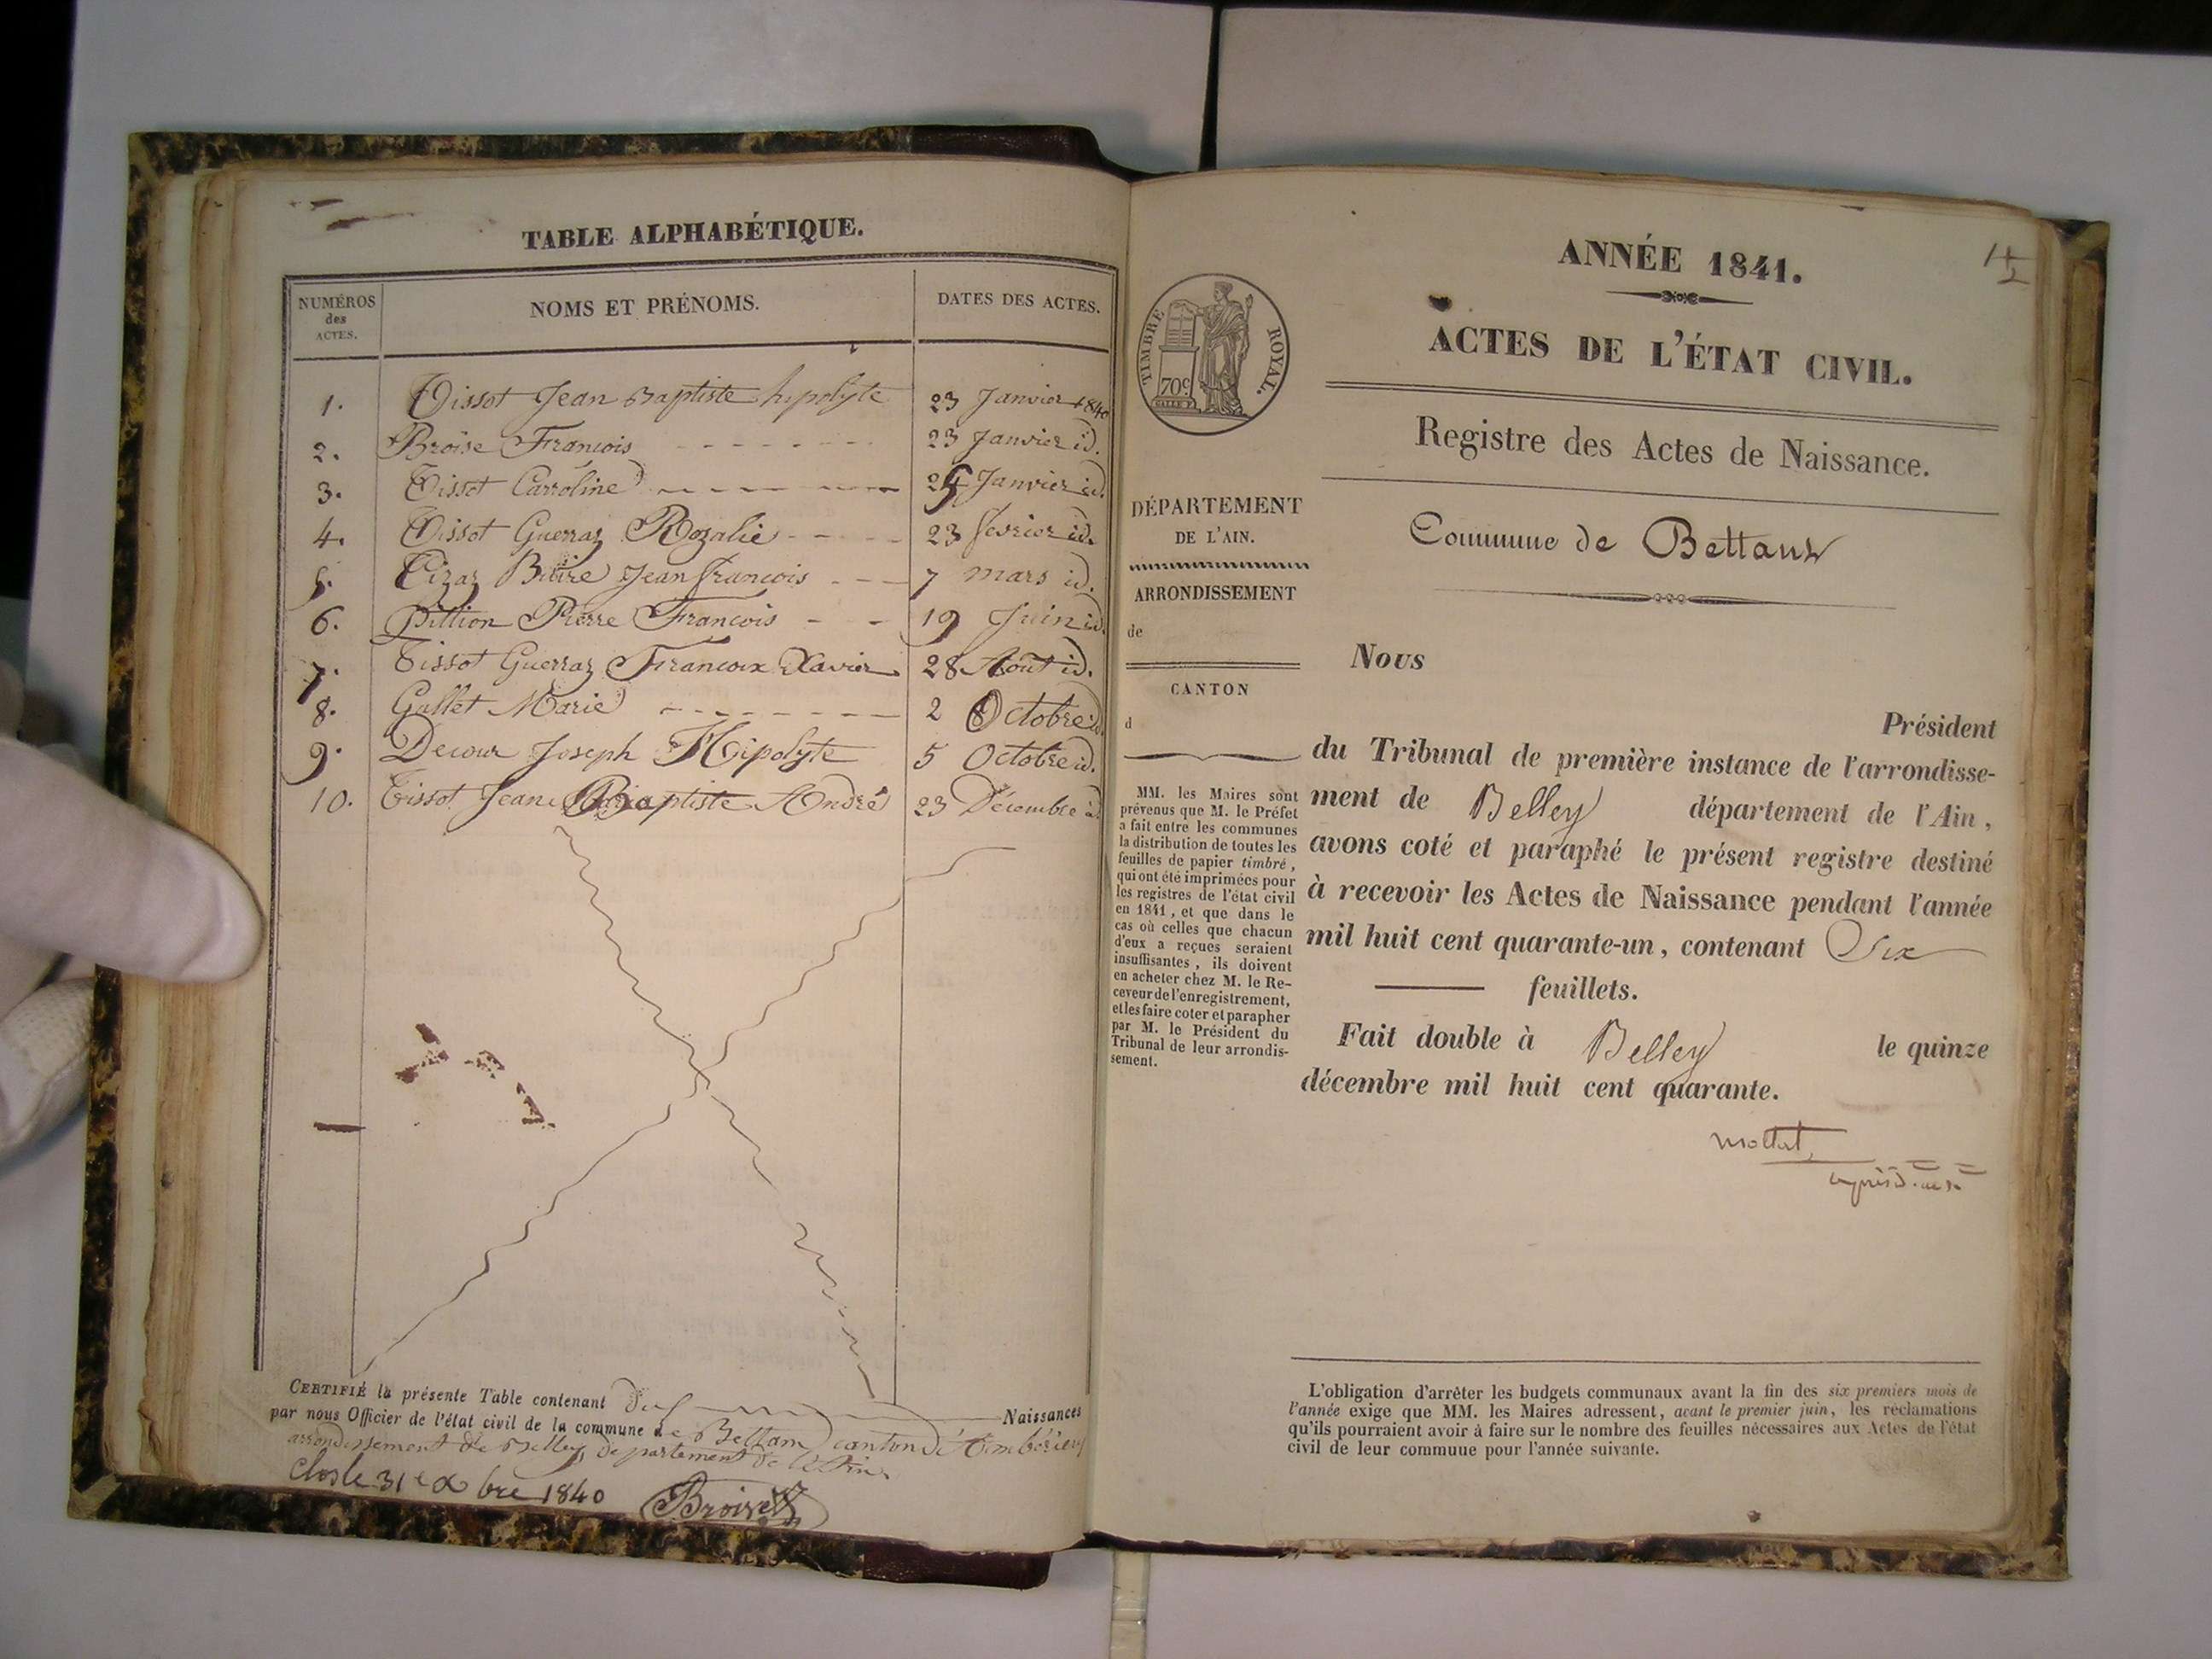 TABLE ALPHABÉTIQUE.
NUMÉROS des ACTES. NOMS ET PRÉNOMS. DATES DES ACTES.
1. Tissot Jean Baptiste hipolyte 23 Janvier 1840
2. Broise Francois 23 Janvier id.
3. Tissot Carroline 25 Janvier id.
4. Tissot Guerraz Rozalie 23 fevrier id.
5. Jean francois 7 mars id.
6. Pittion Pierre Francois 19 Juin id.
7. Tissot Guerraz Francoix Xavier 28 Aout id.
8. Gallet Marie 2 Octobre id.
9. Decour Joseph Hipolyte 5 Octobre id.
10. Tissot Jean Baptiste André 23 Décembre id.
CERTIFIÉ la présente Table contenant dix Naissances
par nous Officier de l'état civil de la commune de Bettant canton d'Ambérieu
arrondissement de Belley département de l'Ain
Clos le 31 Xbre 1840
ANNÉE 1841.
1
TIMBRE ROYAL.
70c
ACTES DE L'ÉTAT CIVIL.
Registre des Actes de Naissance.
DÉPARTEMENT
DE L'AIN.
ARRONDISSEMENT
de
CANTON
d
MM. les Maires sont
prévenus que M. le Préfet
a fait entre les communes
la distribution de toutes les
feuilles de papier timbré,
qui ont été imprimées pour
les registres de l'état civil
en 1841, et que dans le
cas où celles que chacun
d'eux a reçues seraient
insuffisantes, ils doivent
en acheter chez M. le Re-
ceveur de l'enregistrement,
et les faire coter et parapher
par M. le Président du
Tribunal de leur arrondis-
sement.
Commune de Bettant
Nous
Président
du Tribunal de première instance de l'arrondisse-
ment de Belley département de l'Ain,
avons coté et paraphé le présent registre destiné
à recevoir les Actes de Naissance pendant l'année
mil huit cent quarante-un, contenant Six
feuillets.
Fait double à Belley le quinze
décembre mil huit cent quarante.
L'obligation d'arrêter les budgets communaux avant la fin des six premiers mois de
l'année exige que MM. les Maires adressent, avant le premier juin, les réclamations
qu'ils pourraient avoir à faire sur le nombre des feuilles nécessaires aux Actes de l'état
civil de leur commune pour l'année suivante.